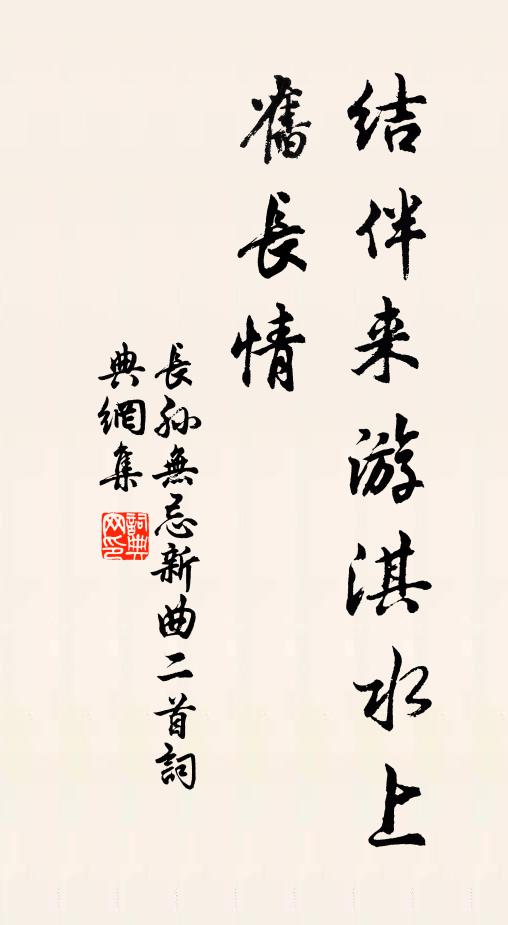 结伴来游淇水上
舊長情
長孙無忌新曲二首詞
典網集
詞典
网印